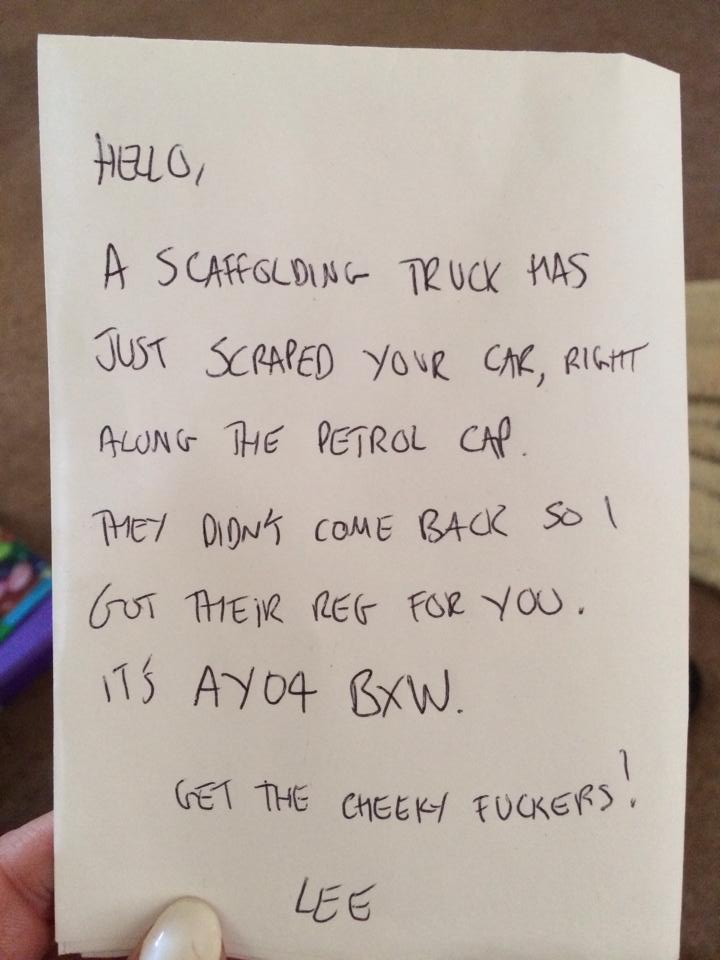 HELLO,
A SCAFFOLDING TRUCK HAS
JUST SCRAPED YOUR CAR, RIGHT
ALONG THE PETROL CAP.
THEY DIDN'T COME BACK SO I
GOT THEIR REG FOR YOU.
IT'S AY04 BXW.
GET THE CHEEKY FUCKERS!
LEE